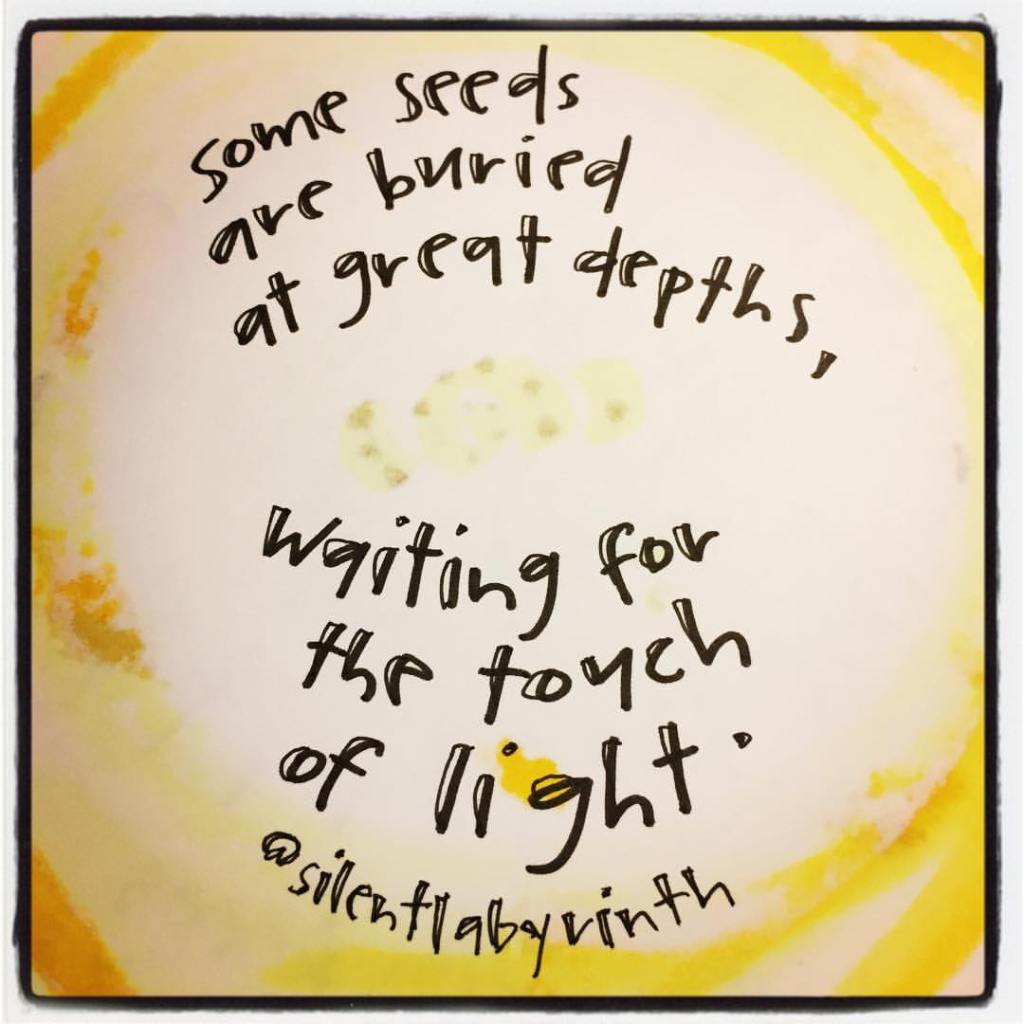 some seeds
are buried
at great depths,
waiting for
the touch
of light.
@silentlabyrinth